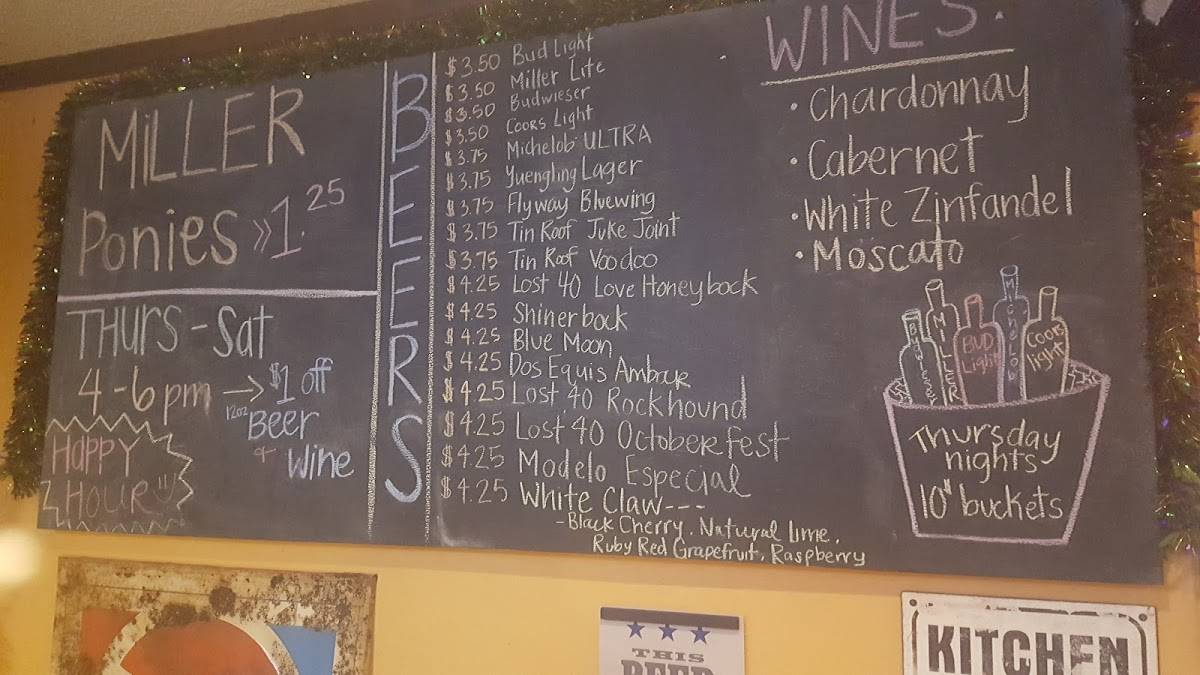 MiLLER
Ponies >> 1.25
THURS - Sat
4 - 6 pm → $1 off
12oz Beer
+ Wine
HAPPY
HOUR
BEERS
$3.50 Bud Light
$3.50 Miller Lite
$3.50 Budwieser
$3.50 Coors Light
$3.75 Michelob ULTRA
$3.75 Yuengling Lager
$3.75 Flyway Bluewing
$3.75 Tin Roof Juke Joint
$3.75 Tin Roof Voodoo
$4.25 Lost 40 Love Honey bock
$4.25 Shiner bock
$4.25 Blue Moon
$4.25 Dos Equis Ambar
$4.25 Lost 40 Rockhound
$4.25 Lost 40 Octoberfest
$4.25 Modelo Especial
$4.25 White Claw---
-Black Cherry, Natural Lime,
Ruby Red Grapefruit, Raspberry
WINES
• Chardonnay
• Cabernet
• White Zinfandel
• Moscato
MILLER
BUD
Light
Coors
light
Thursday
nights
10" buckets
THIS
BEER
KITCHEN